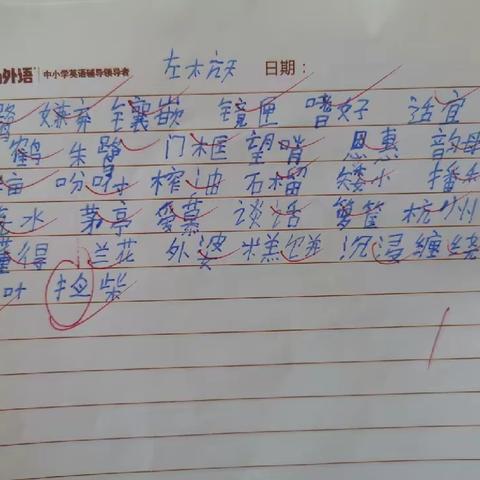 外语 中小学英语辅导领导者 日期:
嫌弃 镶嵌 镜匣 嗜好 适宜
鹤 朱鹭 门框 望哨 恩惠 韵母
亩 吩咐 榨油 石榴 矮小 播
水 茅亭 爱慕 谈话 杭州
懂得 兰花 外婆 糕饼 沉浸 缠绕
叶 柴